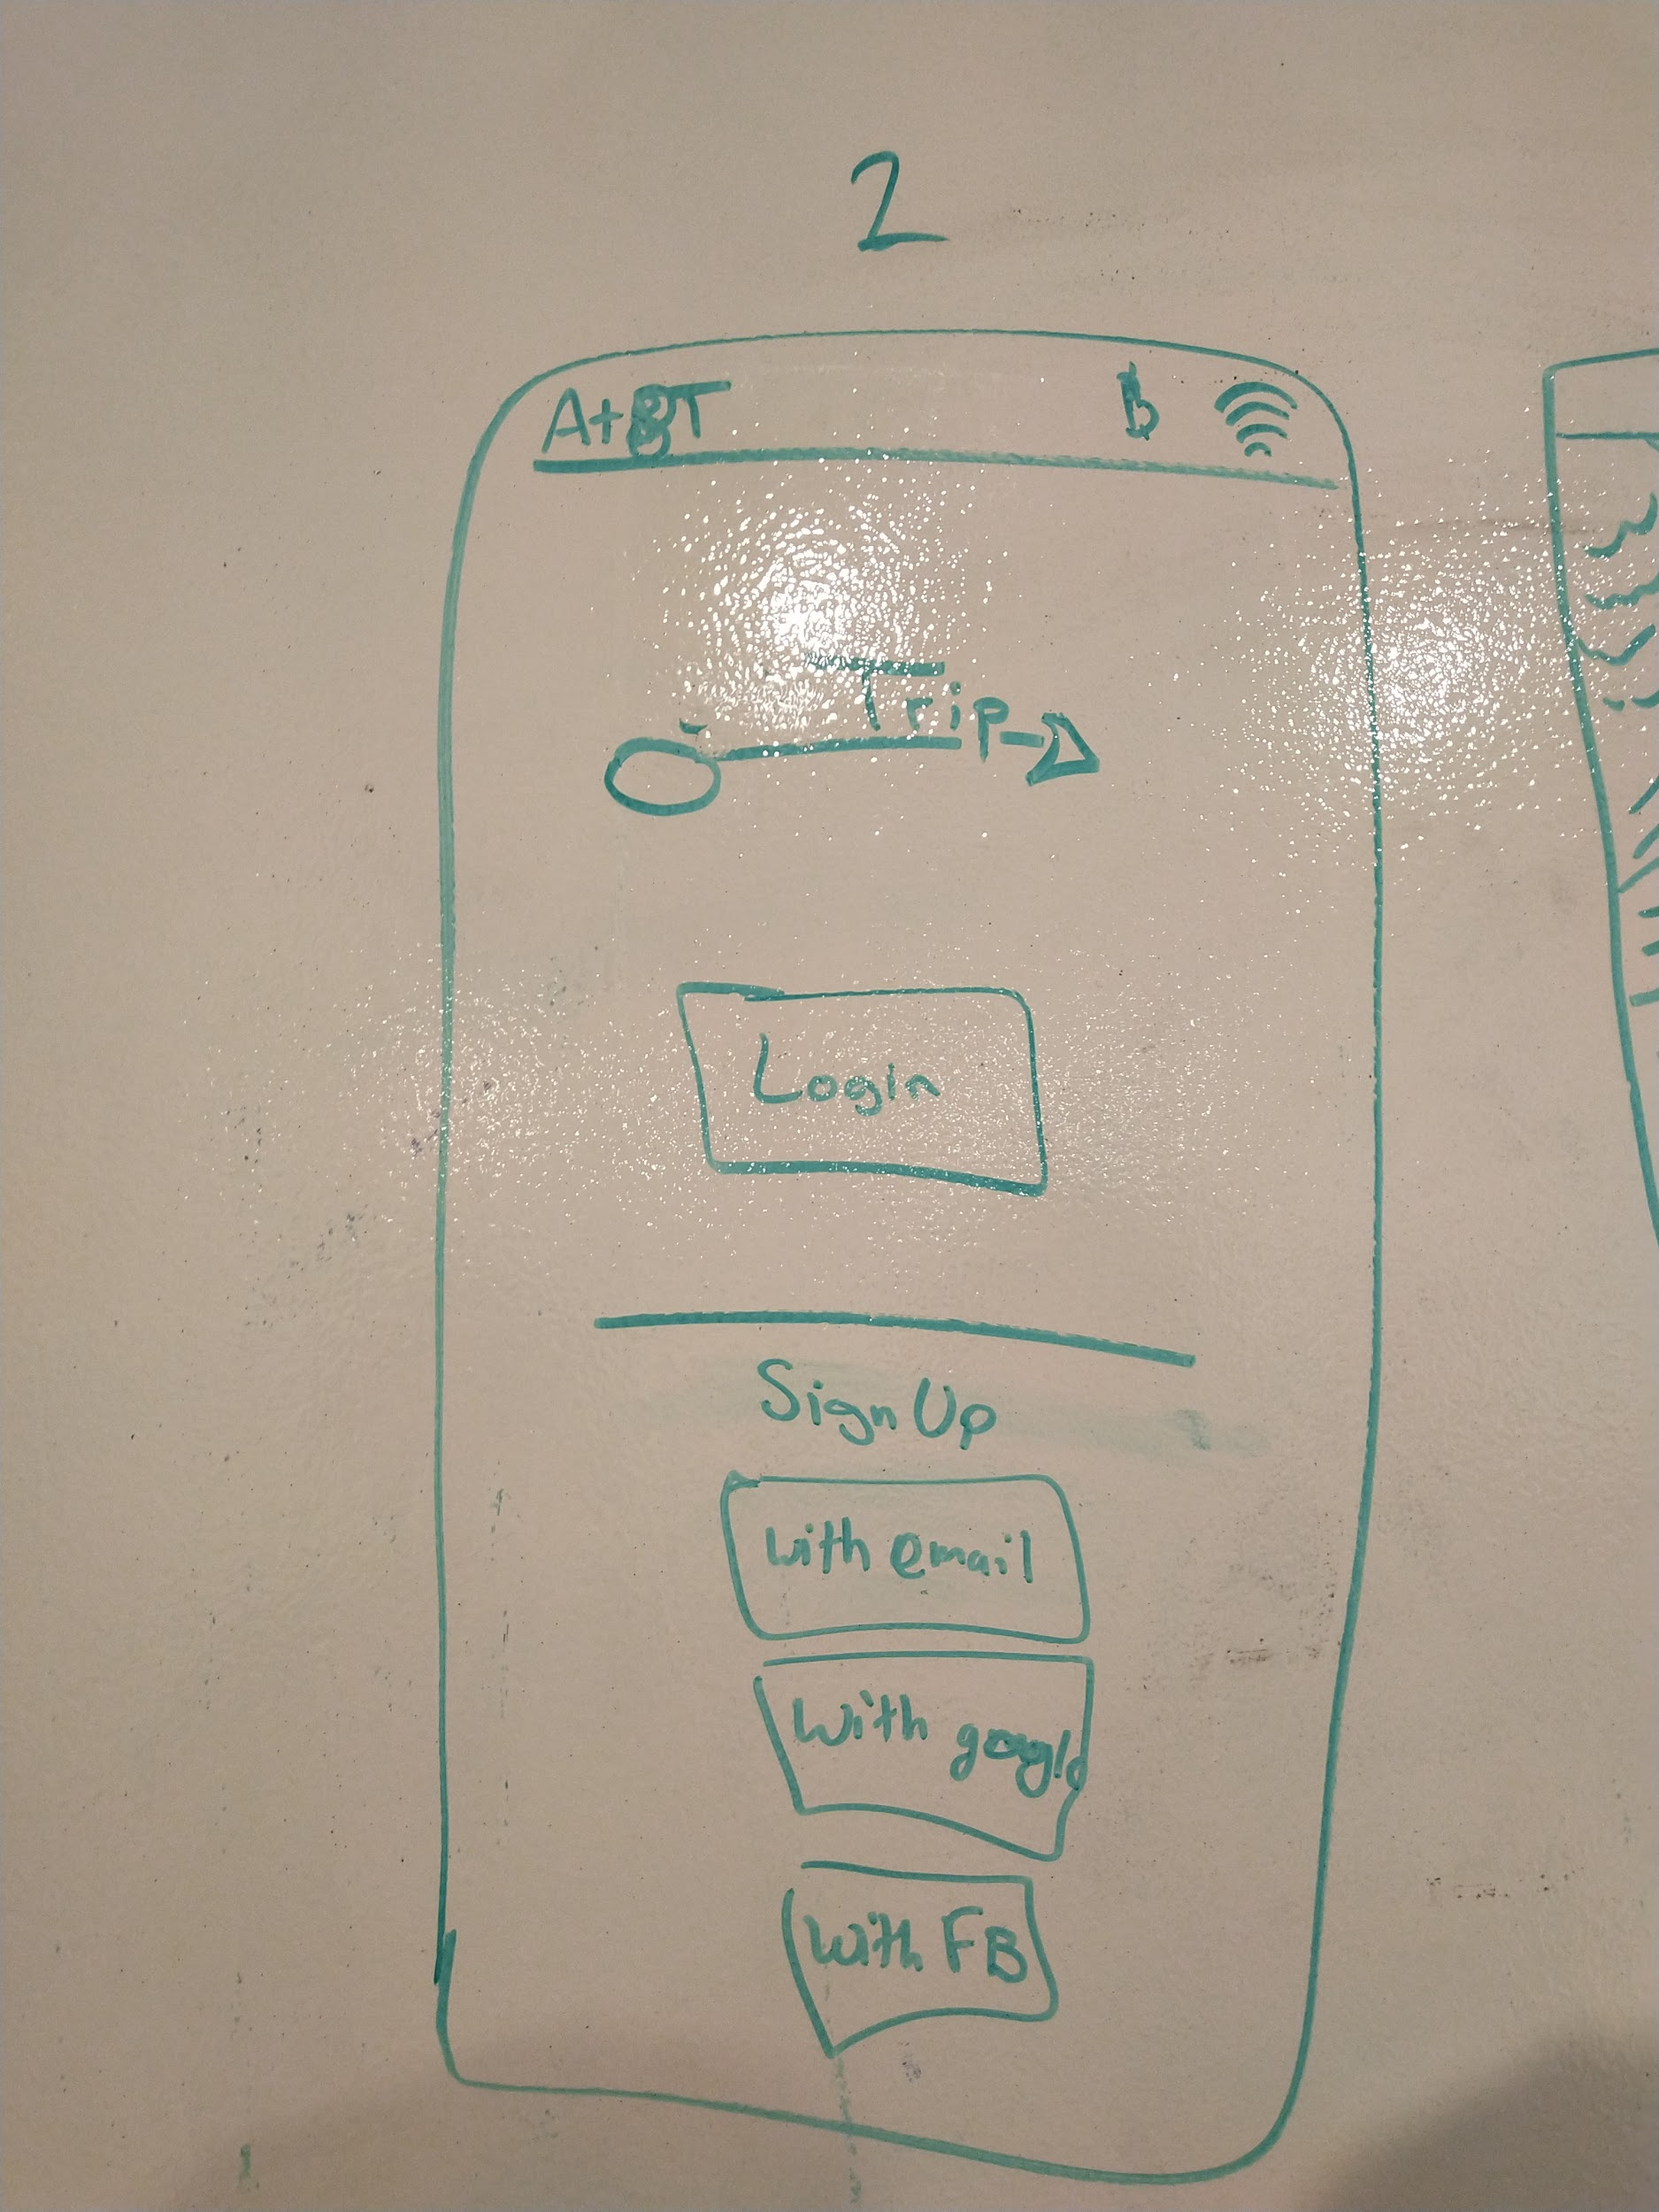 2
A+&T
Trip
Login
Sign Up
with email
with google
with FB